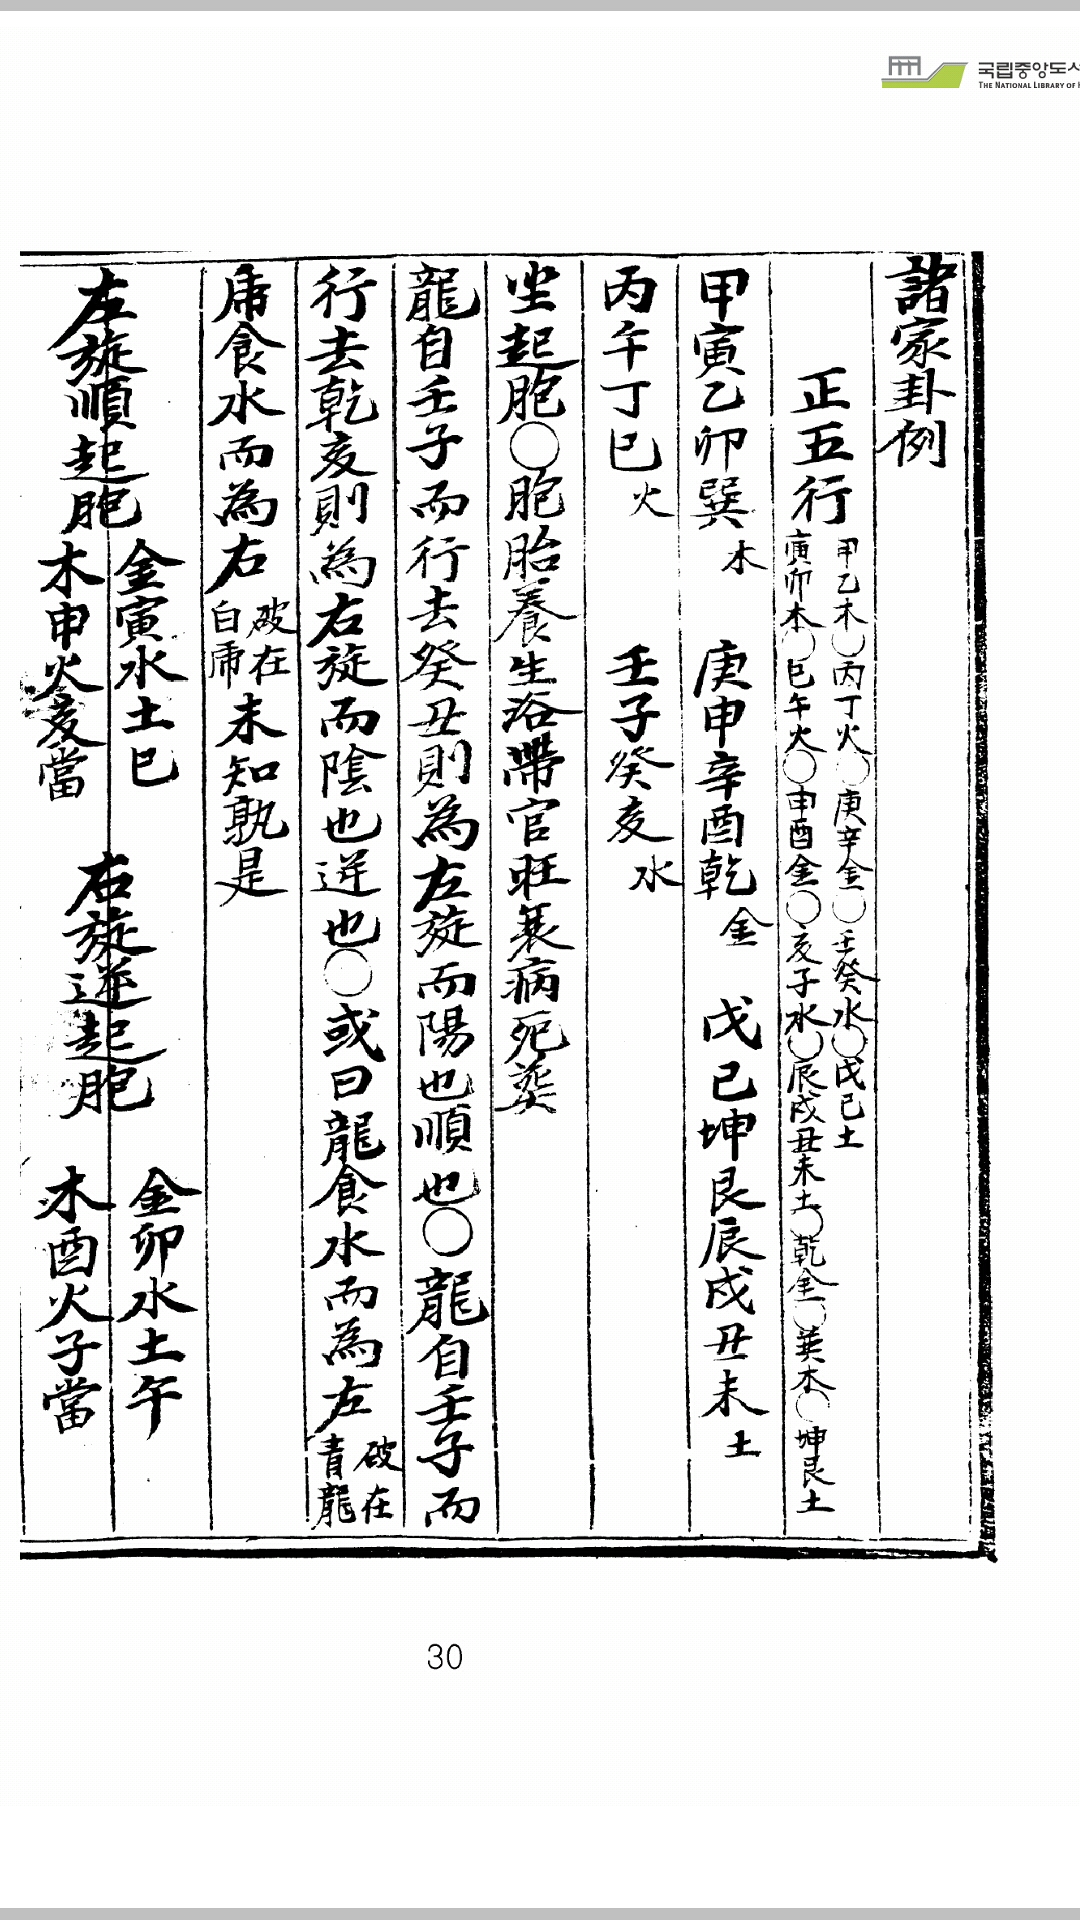 국립중앙도서
THE NATIONAL LIBRARY OF
諸家卦例
正五行 甲乙木〇丙丁火〇庚辛金〇壬癸水〇戊己土
寅卯木〇巳午火〇申酉金〇亥子水〇辰戌丑未土〇乾金〇巽木〇坤艮土
甲寅乙卯巽木 庚申辛酉乾金 戊己坤艮辰戌丑未土
丙午丁巳火 壬子癸亥水
坐起胞〇胞胎養生浴帶官旺衰病死葬
龍自壬子而行去癸丑則為左旋而陽也順也〇龍自壬子而
行去乾亥則為右旋而陰也逆也〇或曰龍食水而為左破在青龍
虎食水而為右破在白虎未知孰是
左旋順起胞 金寅水土巳
木申火亥當
右旋逆起胞 金卯水土午
木酉火子當
30